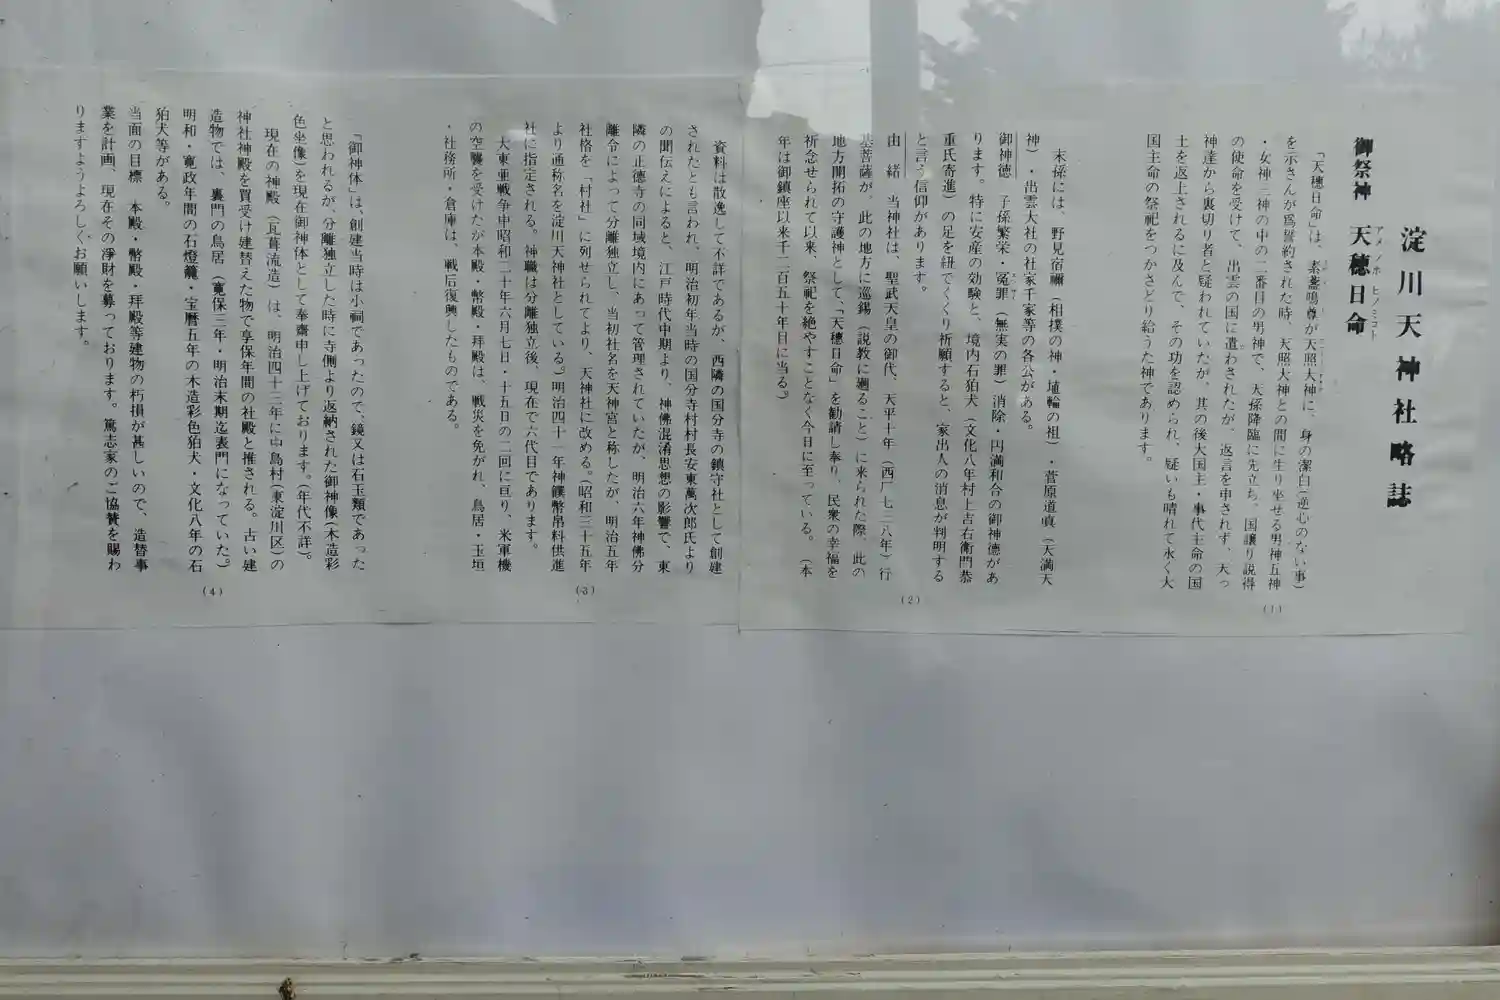 淀川天神社略誌
御祭神　天穂日命
アメノホ ヒノミコト
「天穂日命」は、素盞鳴尊が天照大神に、身の潔白(逆心のない事)
を示さんが爲誓約された時、大照大神との間に生り坐せる男神五神
・女神三神の中の二番目の男神で、天孫降臨に先立ち、国譲り説得
の使命を受けて、出雲の国に遣わされたが、返言を申されず、天つ
神達から裏切り者と疑われていたが、其の後大国主・事代主命の国
土を返上されるに及んで、その功を認められ、疑いも晴れて永く大
国主命の祭祀をつかさどり給うた神であります。
(1)
末孫には、野見宿禰（相撲の神・埴輪の祖）・菅原道真（天満天
神）・出雲大社の社家千家等の各公がある。
御神徳　子孫繁栄・冤罪（無実の罪）消除・円満和合の御神徳があ
ります。特に安産の効験と、境内石狛犬（文化八年村上吉右衛門恭
重氏寄進）の足を紐でくくり祈願すると、家出人の消息が判明する
と言う信仰があります。
由　緒　当神社は、聖武天皇の御代、天平十年（西厂七三八年）行
基菩薩が、此の地方に巡錫（説教に廻ること）に来られた際、此の
地方開拓の守護神として、「天穂日命」を勧請し奉り、民衆の幸福を
祈念せられて以来、祭祀を絶やすことなく今日に至っている。（本
年は御鎮座以来千二百五十年目に当る。）
(2)
資料は散逸して不詳であるが、西隣の国分寺の鎮守社として創建
されたとも言われ、明治初年当時の国分寺村村長安東萬次郎氏より
の聞伝えによると、江戸時代中期より、神佛混淆思想の影響で、東
隣の正徳寺の同域境内にあって管理されていたが、明治六年神佛分
離令によって分離独立し、当初社名を天神宮と称したが、明治五年
社格を「村社」に列せられてより、天神社に改める。（昭和三十五年
より通称名を淀川天神社としている。）明治四十一年神饌幣帛料供進
社に指定される。神職は分離独立後、現在で六代目であります。
大東亜戦争中昭和二十年六月七日・十五日の二回に亘り、米軍機
の空襲を受けたが本殿・幣殿・拝殿は、戦災を免がれ、鳥居・玉垣
・社務所・倉庫は、戦后復興したものである。
(3)
『御神体』は、創建当時は小祠であったので、鏡又は石玉類であった
と思われるが、分離独立した時に寺側より返納された御神像（木造彩
色坐像）を現在御神体として奉齋申し上げております。（年代不詳）。
現在の神殿（瓦葺流造）は、明治四十三年に中島村（東淀川区）の
神社神殿を買受け建替えた物で享保年間の社殿と推される。古い建
造物では、裏門の鳥居（寛保三年・明治末期迄表門になっていた。）
明和・寛政年間の石燈籠・宝暦五年の木造彩色狛犬・文化八年の石
狛犬等がある。
当面の目標　本殿・幣殿・拝殿等建物の朽損が甚しいので、造替事
業を計画、現在その淨財を募っております。篤志家のご協賛を賜わ
りますようよろしくお願いします。
(4)